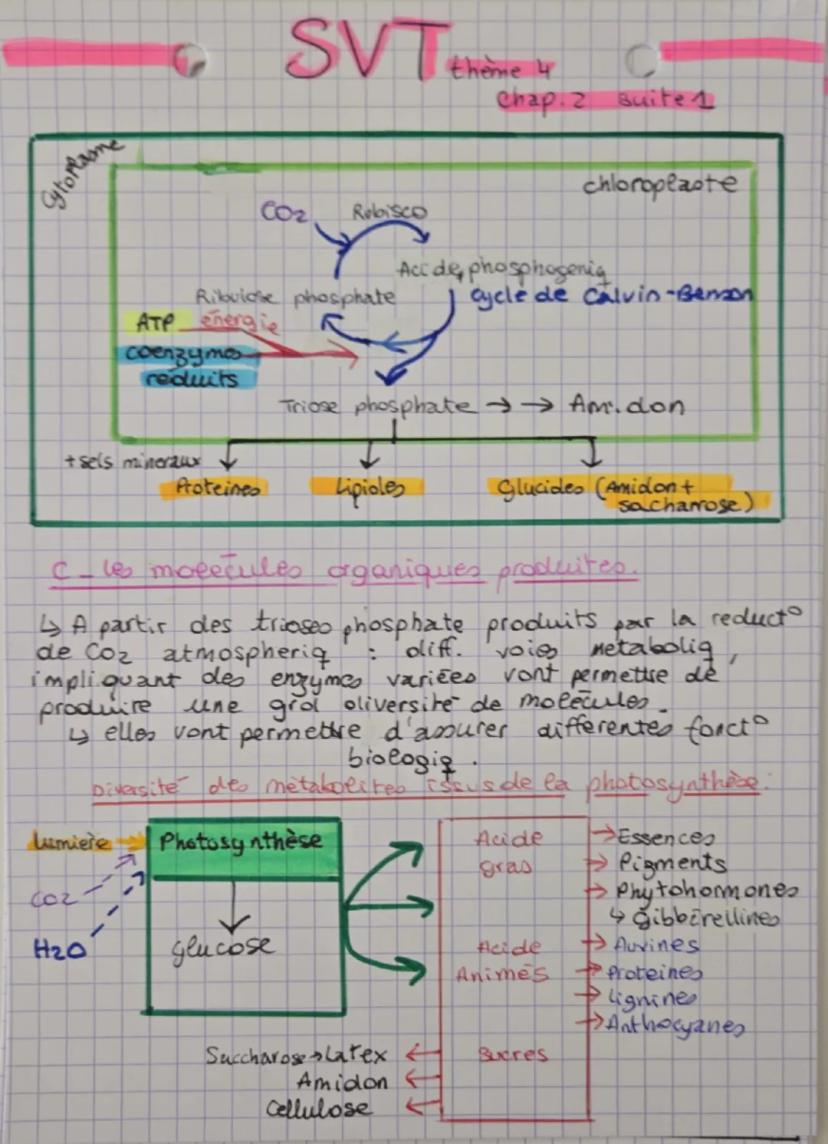 SVT thème 4
chap. 2 suite 1
Cytoplasme
chloroplaste
CO2 Rubisco
Acide phosphogeniq
Ribulose phosphate cycle de Calvin-Benson
ATP énergie
coenzymes
réduits
Triose phosphate → → Amidon
+ sels mineraux
Proteines Lipides Glucides (Amidon +
saccharrose)
C - les molécules organiques produites.
↳ A partir des trioses phosphate produits par la reduct°
de CO2 atmospheriq : diff. voies metaboliq,
impliquant des enzymes variées vont permettre de
produire une grd diversité de molécules.
↳ elles vont permettre d'assurer differentes fonct°
biologiq.
Diversité des métabolites issus de la photosynthèse:
Lumière Photosynthèse
CO2
H2O glucose
Acide → Essences
gras → Pigments
→ Phytohormones
↳ Gibbérellines
Acide → Auxines
Animés → Proteines
→ Lignines
→ Anthocyanes
Saccharose → Latex ← sucres
Amidon ←
Cellulose ←